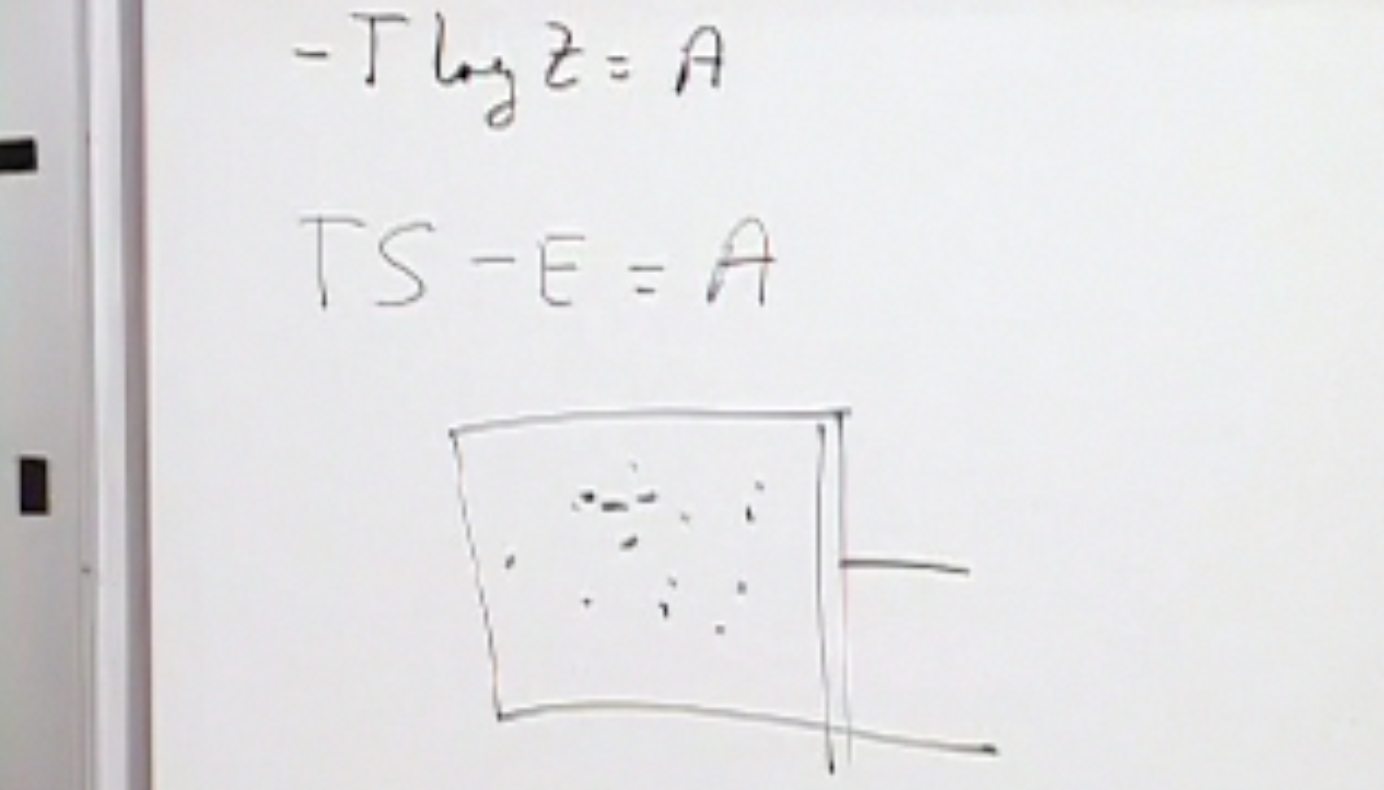 - T log Z = A
TS - E = A